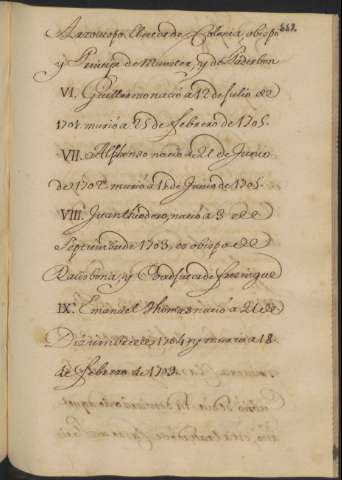 557.
Arzovispo Elector de Colonia, obispo
y Principe de Munster, y de Paderbon
VI. Guillermo nació a 12 de Julio de
1701. murió a 25 de febrero de 1705.
VII. Alphonso nació a 21 de Junio
de 1702. murió a de Junio de 1705.
VIII. Juan theodoro, nació a 3 de
Septiembre de 1703, es obispo de
Ratisbona, y de freisingue
IX. Emanuel thomas nació a 21 de
Diziembre de 1704 y murió a 18
de febrero de 1709.